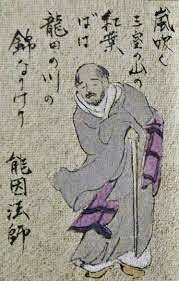 嵐吹く
三室の山の
紅葉
ばは
龍田の川の
錦なりけり
能因法師